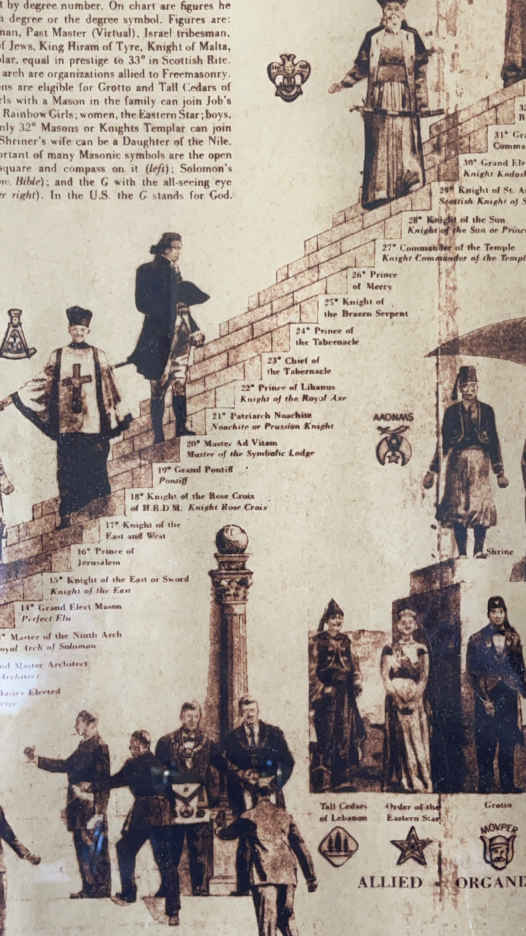 t by degree number. On chart are figures he
degree or the degree symbol. Figures are:
man, Past Master (Virtual), Israel tribesman,
of Jews, King Hiram of Tyre, Knight of Malta,
plar, equal in prestige to 33° in Scottish Rite.
arch are organizations allied to Freemasonry.
ns are eligible for Grotto and Tall Cedars of
rls with a Mason in the family can join Job's
Rainbow Girls; women, the Eastern Star; boys,
nly 32° Masons or Knights Templar can join
Shriner's wife can be a Daughter of the Nile.
ortant of many Masonic symbols are the open
square and compass on it (left); Solomon's
Bible); and the G with the all-seeing eye
er right). In the U.S. the G stands for God.
31° Gra
Comma
30° Grand Ele
Knight Kadosh
29° Knight of St. A
Scottish Knight of S
28° Knight of the Sun
Knight of the Sun or Prince
27° Commander of the Temple
Knight Commander of the Templ
26° Prince
of Mercy
25° Knight of
the Brazen Serpent
24° Prince of
the Tabernacle
23° Chief of
the Tabernacle
22° Prince of Libanus
Knight of the Royal Axe
21° Patriarch Noachite
Noachite or Prussian Knight
20° Master Ad Vitam
Master of the Symbolic Lodge
19° Grand Pontiff
Pontiff
18° Knight of the Rose Croix
of H.R.D.M. Knight Rose Croix
17° Knight of the
East and West
16° Prince of
Jerusalem
15° Knight of the East or Sword
Knight of the East
14° Grand Elect Mason
Perfect Elu
° Master of the Ninth Arch
oyal Arch of Solomon
nd Master Architect
Architect
Master Elected
AAONMS
Shrine
Tall Cedars
of Lebanon
Order of the
Eastern Star
Grotto
MOVPER
ALLIED ORGANI